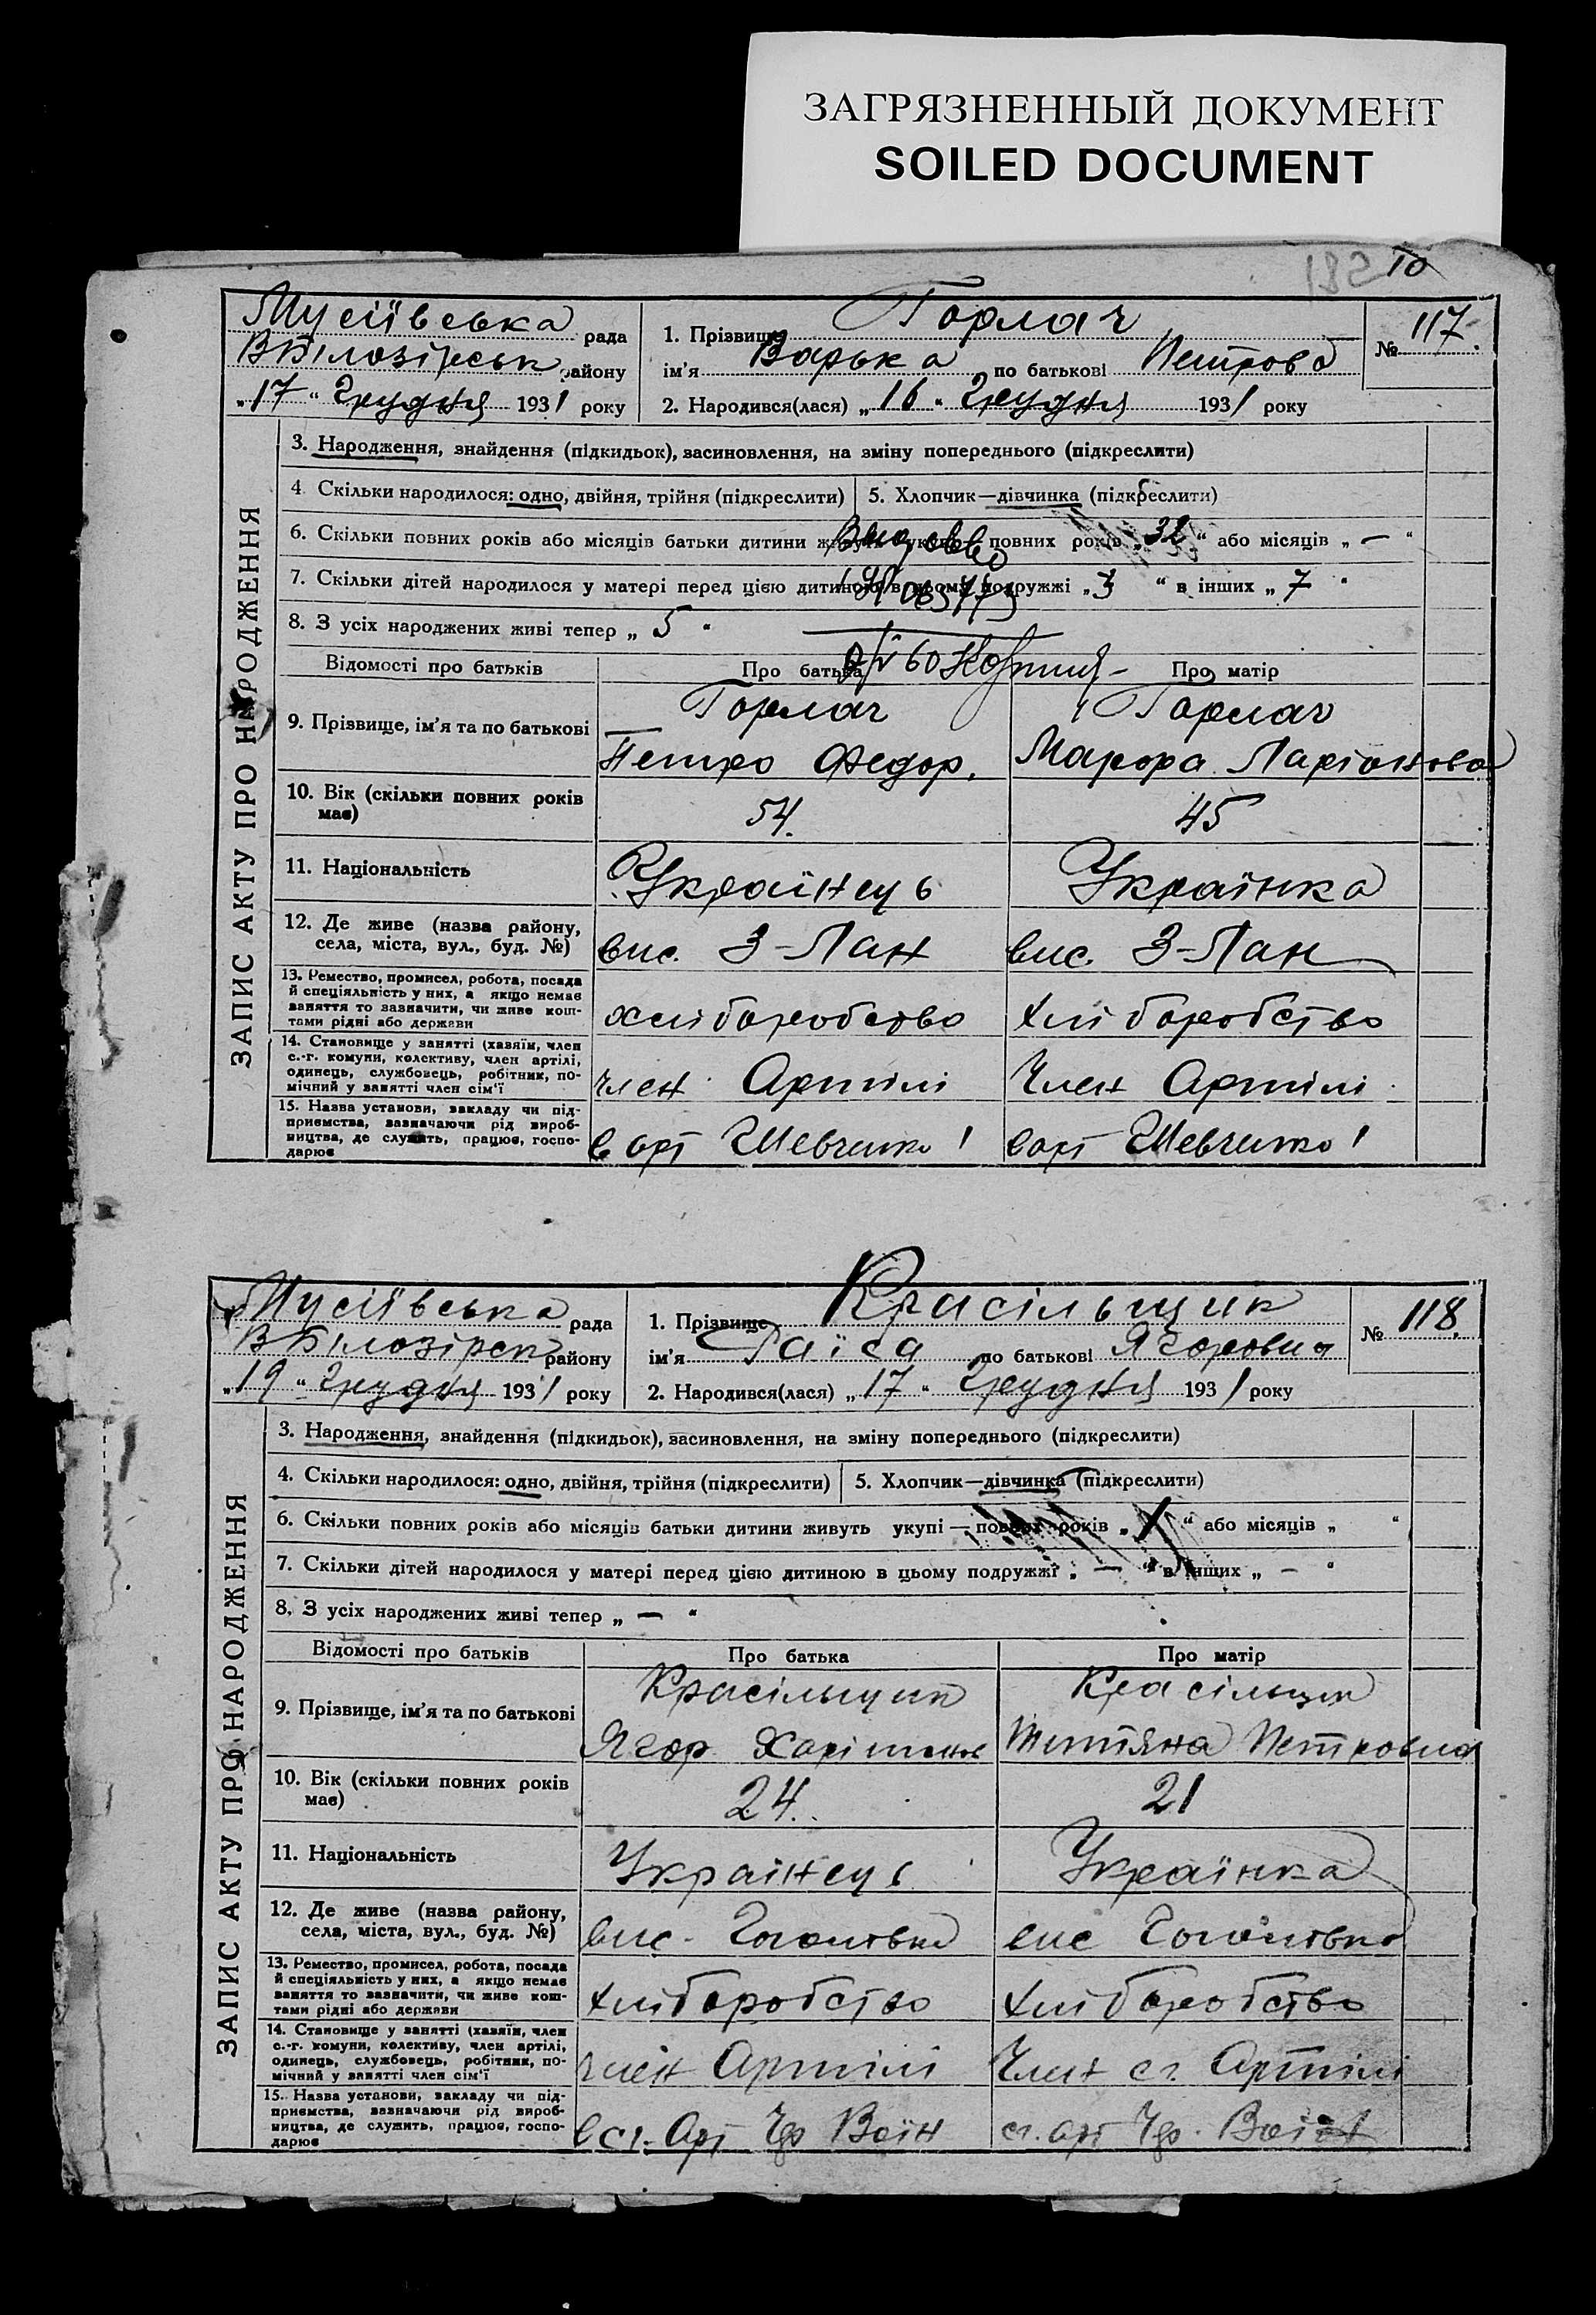 ЗАГРЯЗНЕННЫЙ ДОКУМЕНТ
SOILED DOCUMENT
182 10
Мусіївська рада
ВБілозірськ району
„17“ Грудня 1931 року
1. Прізвище Горлач
ім'я Варька по батькові Петрова
2. Народився(лася) „16“ Грудня 1931 року
№ 117.
ЗАПИС АКТУ ПРО НАРОДЖЕННЯ
3. Народження, знайдення (підкидьок), засиновлення, на зміну попереднього (підкреслити)
4 Скільки народилося: одно, двійня, трійня (підкреслити) 5. Хлопчик—дівчинка (підкреслити)
6. Скільки повних років або місяців батьки дитини живуть укупі — повних років „32“ або місяців „—“
7. Скільки дітей народилося у матері перед цією дитиною в цьому подружжі „3“ в інших „7“
8. З усіх народжених живі тепер „5“
Відомості про батьків Про батька Про матір
9. Прізвище, ім'я та по батькові
Горлач Горлач
Петро Федор. Ларіонова
10. Вік (скільки повних років має) 54. 45
11. Національність Українець Українка
12. Де живе (назва району, села, міста, вул., буд. №) вис. 3-Лан вис. 3-Лан
13. Ремество, промисел, робота, посада й спеціяльність у них, а якщо немає заняття то зазначити, чи живе коштами рідні або держави
хліборобство хліборобство
14. Становище у занятті (хазяїн, член с.-г. комуни, колективу, член артілі, одинець, службовець, робітник, помічний у занятті член сім'ї
член Артілі Член Артілі
15. Назва установи, закладу чи підприємства, зазначаючи рід виробництва, де служить, працює, господарює
в арт Шевченко в арт Шевченко
Мусіївська рада
ВБілозірск району
„19“ Грудня 1931 року
1. Прізвище Красільщик
ім'я Раїса по батькові Ягоровна
2. Народився(лася) „17“ Грудня 1931 року
№ 118.
ЗАПИС АКТУ ПРО НАРОДЖЕННЯ
3. Народження, знайдення (підкидьок), засиновлення, на зміну попереднього (підкреслити)
4. Скільки народилося: одно, двійня, трійня (підкреслити) 5. Хлопчик—дівчинка (підкреслити)
6. Скільки повних років або місяців батьки дитини живуть укупі — повних років „1“ або місяців „ “
7. Скільки дітей народилося у матері перед цією дитиною в цьому подружжі „—“ в інших „—“
8. З усіх народжених живі тепер „—“
Відомості про батьків Про батька Про матір
9. Прізвище, ім'я та по батькові
Красільщик Красільщик
Ягор Петровна
10. Вік (скільки повних років має) 24. 21
11. Національність Українець Українка
12. Де живе (назва району, села, міста, вул., буд. №) вис. вис
13. Ремество, промисел, робота, посада й спеціяльність у них, а якщо немає заняття то зазначити, чи живе коштами рідні або держави
хліборобство хліборобство
14. Становище у занятті (хазяїн, член с.-г. комуни, колективу, член артілі, одинець, службовець, робітник, помічний у занятті член сім'ї
член Артілі Член сг. Артілі
15. Назва установи, закладу чи підприємства, зазначаючи рід виробництва, де служить, працює, господарює
в сг. Арт Чр Воїн сг. арт Чр. Воїн